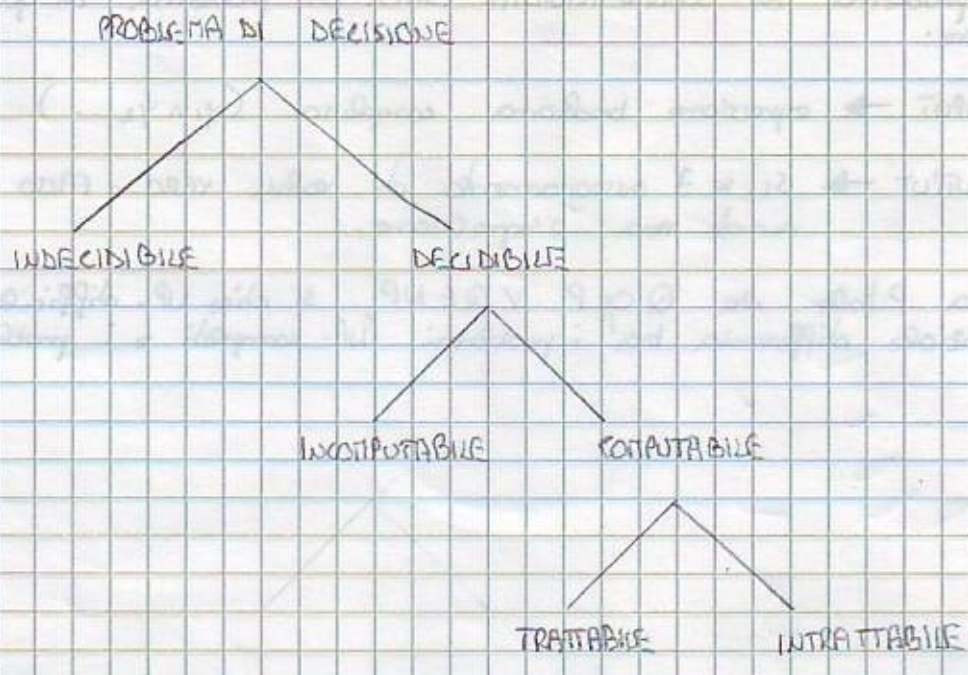 PROBLEMA DI DECISIONE
INDECIDIBILE DECIDIBILE
INCOMPUTABILE COMPUTABILE
TRATTABILE INTRATTABILE